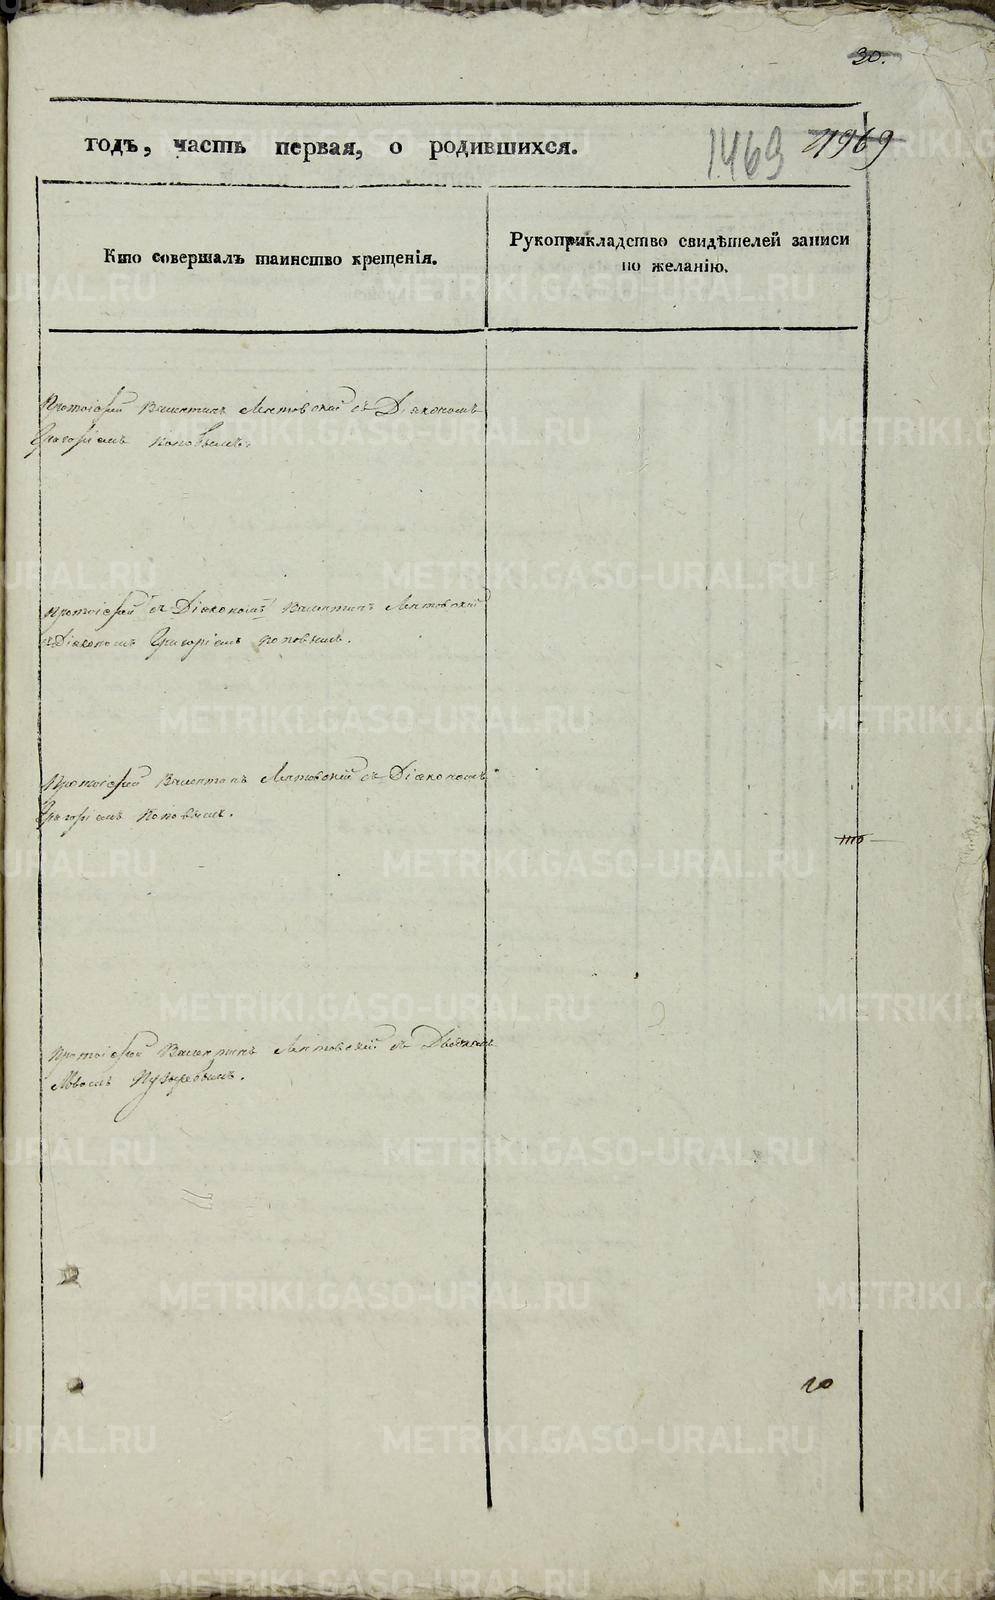 30.
годъ, часть первая, о родившихся.
1469
Кто совершалъ таинство крещенія.
Рукоприкладство свидѣтелей записи
по желанію.
Протоіерей Валентин Лятовский съ Діакономъ
Григоріемъ Поповымъ.
Протоіерей съ Діакономъ Валентинъ Лятовский
съ Діакономъ Григоріемъ Поповымъ.
Протоіерей Валентинъ Лятовский съ Діакономъ
Григоріемъ Поповымъ.
Протоіерей Валентинъ Лятовский съ
Пузыревымъ.
METRIKI.GASO-URAL.RU